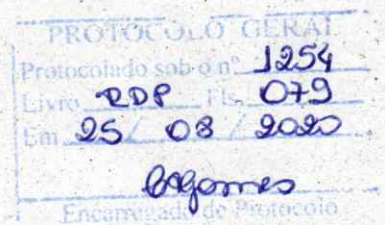 PROTOCOLO GERAL
Protocolado sob o nº 1254
Livro RDP Fls. 079
Em 25 / 08 / 2020
Encarregado do Protocolo